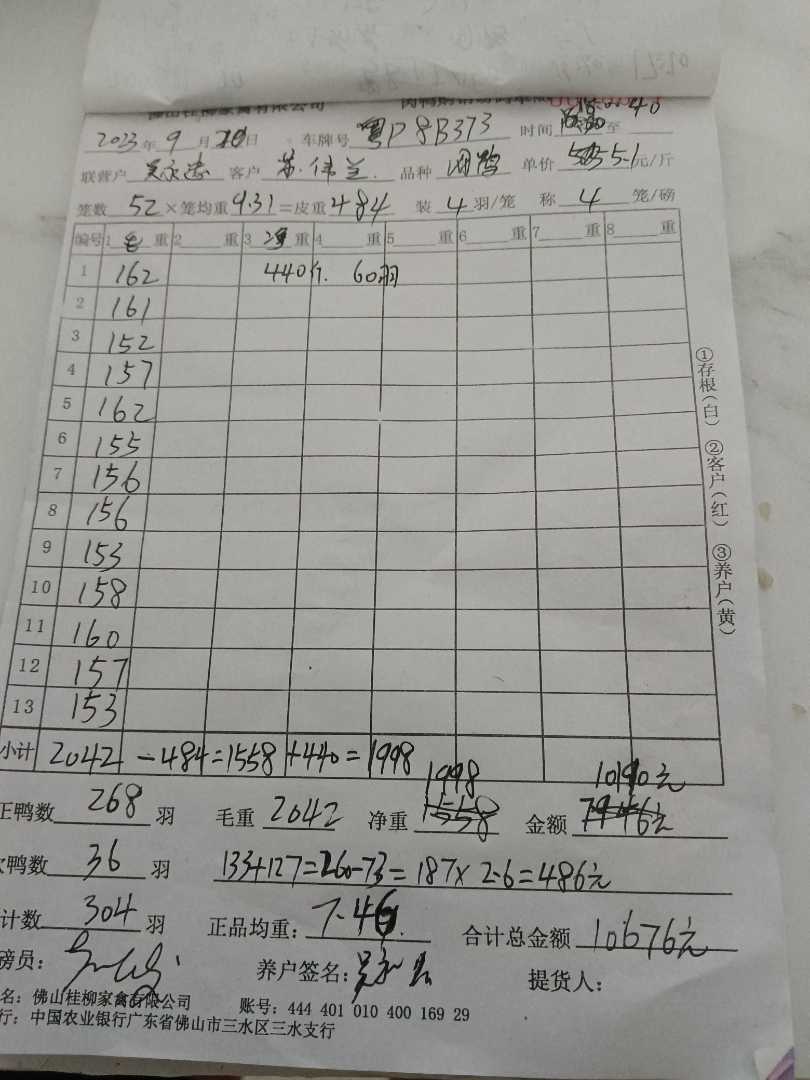 佛山桂柳家禽有限公司
2023年9月20日 车牌号 粤P8B373 时间 至
联营户 客户 苏伟兰 品种 肉鸭 单价 5.1元/斤
笼数 52×笼均重9.31=皮重484 装 4 羽/笼 称 4 笼/磅
编号 1 毛 重 2 重 3 净 重 4 重 5 重 6 重 7 重 8 重
1 162 440斤. 60羽
2 161
3 152
4 157
5 162
6 155
7 156
8 156
9 153
10 158
11 160
12 157
13 153
小计 2042 -484=1558+440=1998
1998 10190元
正鸭数 268 羽 毛重 2042 净重 1558 金额 7946元
次鸭数 36 羽 133+127=260-73=187×2.6=486元
计数 304 羽 正品均重: 7.46 合计总金额 10676元
磅员: 养户签名: 提货人:
名: 佛山桂柳家禽有限公司 账号: 444 401 010 400 169 29
行: 中国农业银行广东省佛山市三水区三水支行
①存根(白) ②客户(红) ③养户(黄)